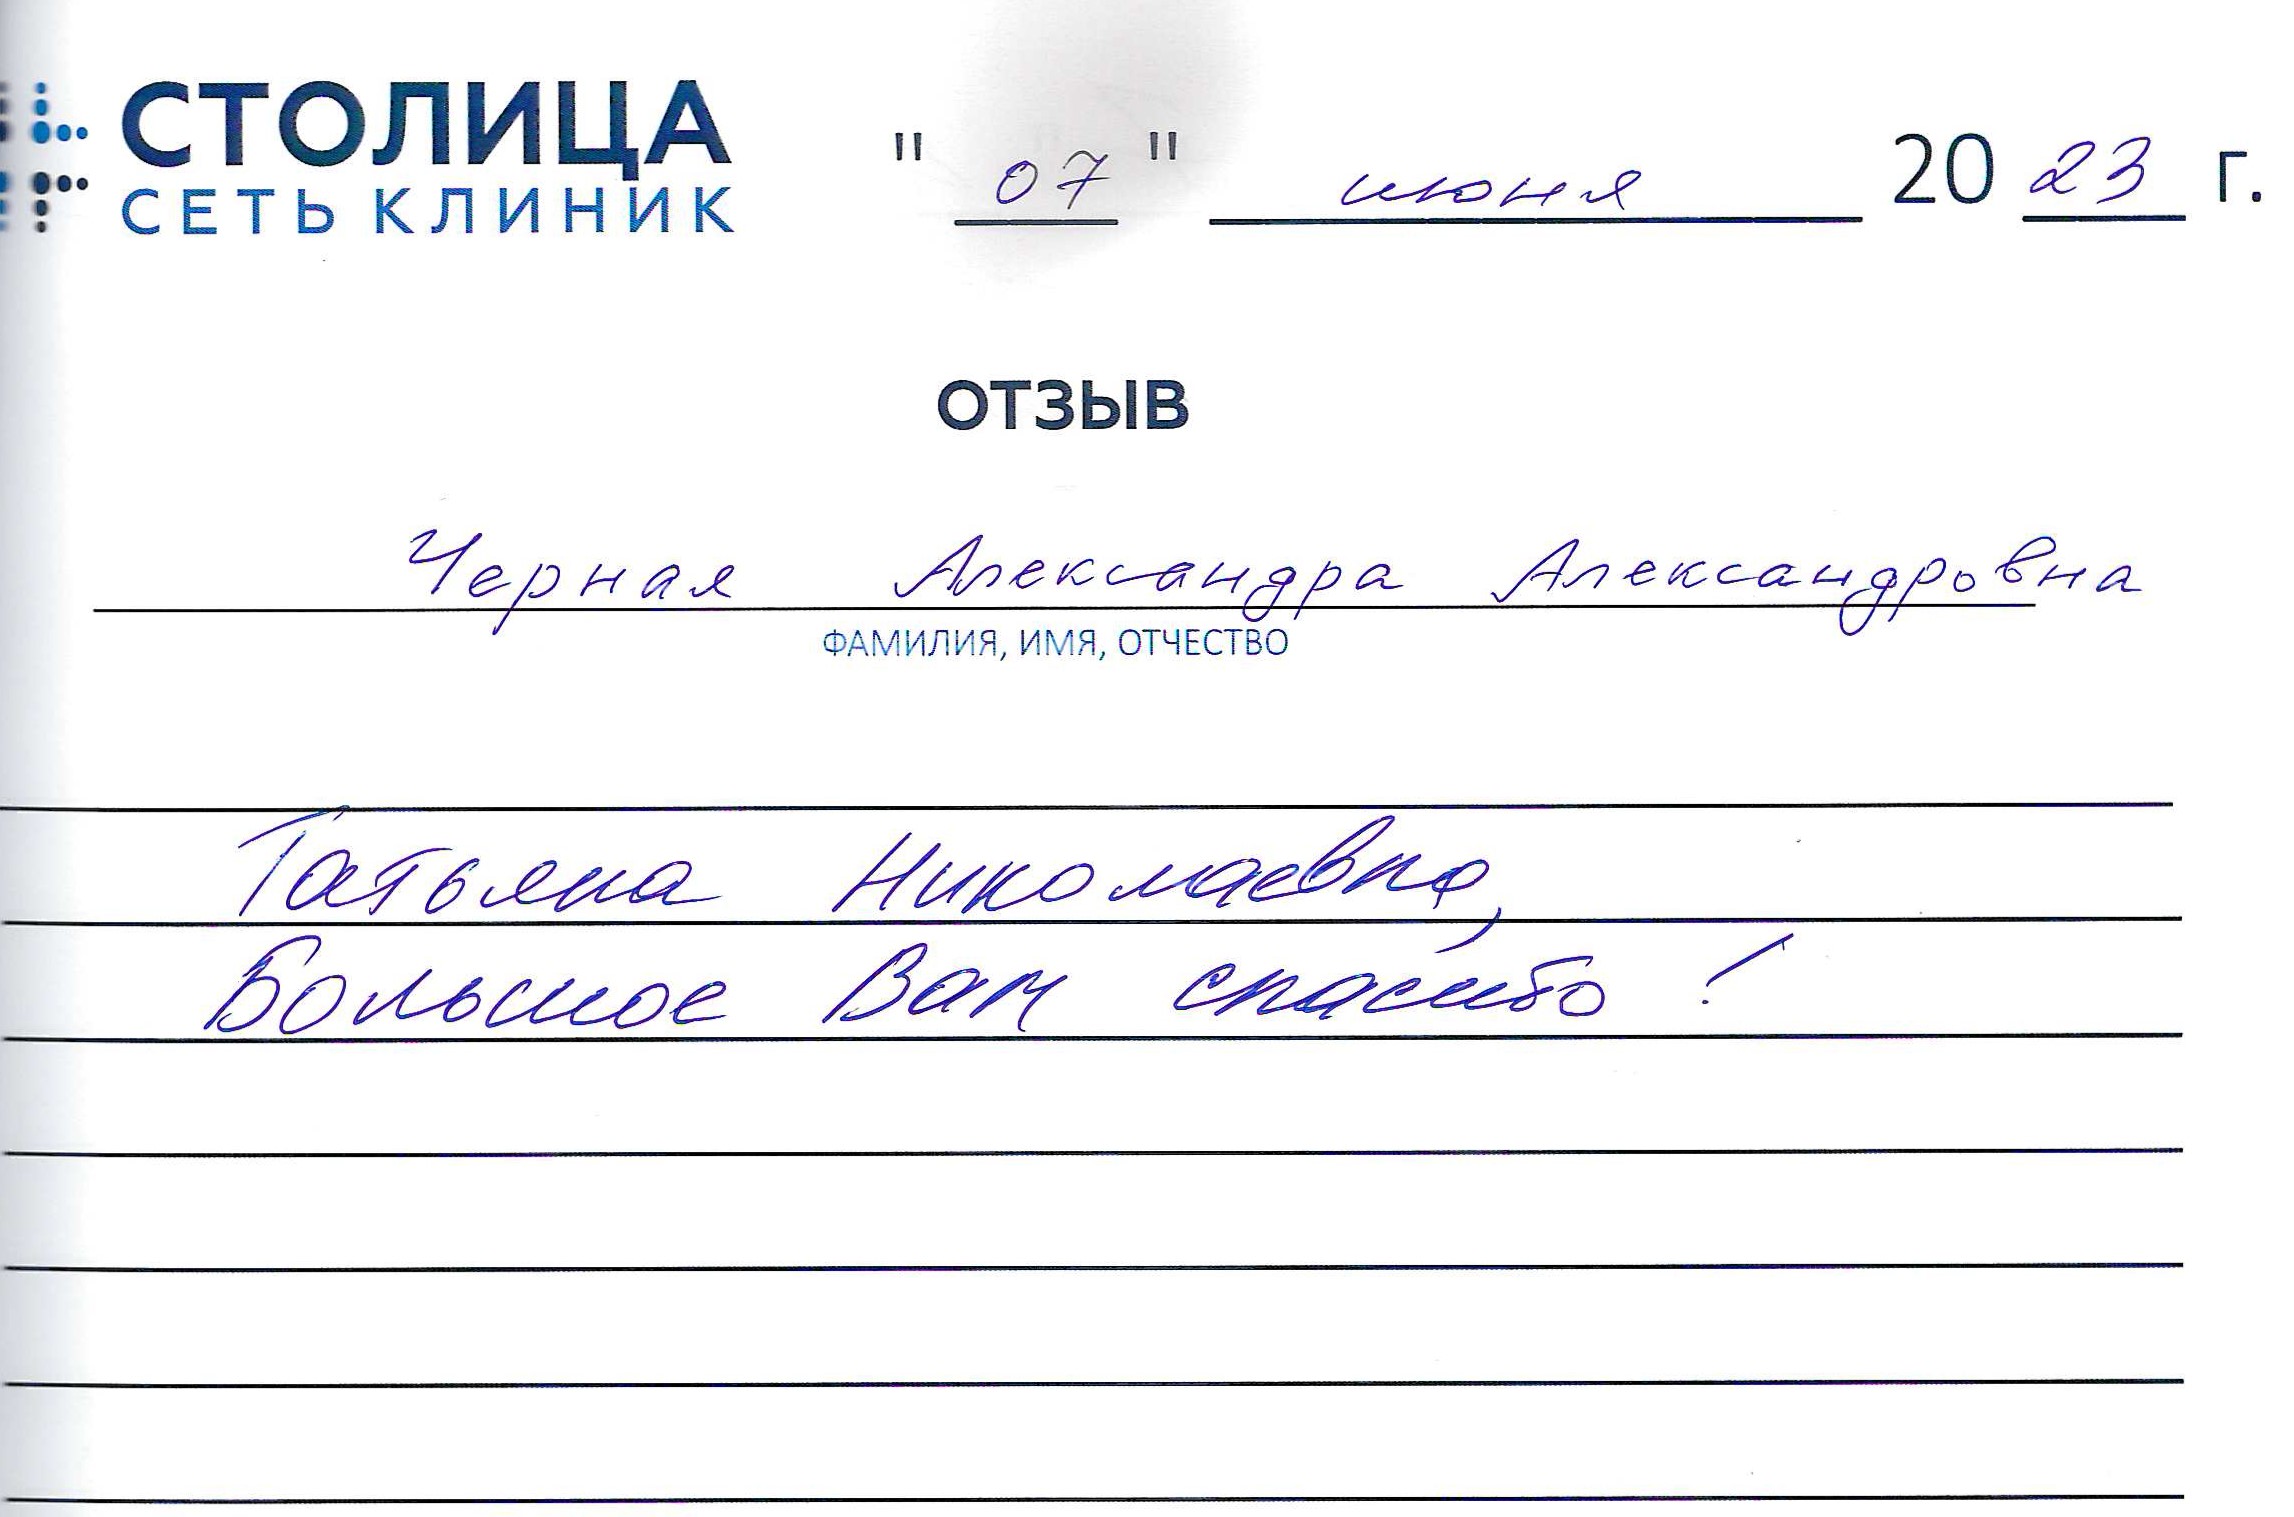 СТОЛИЦА
СЕТЬ КЛИНИК
" 07 " июня 20 23 г.
ОТЗЫВ
Черная Александра Александровна
ФАМИЛИЯ, ИМЯ, ОТЧЕСТВО
Татьяна Николаевна,
Большое Вам спасибо!